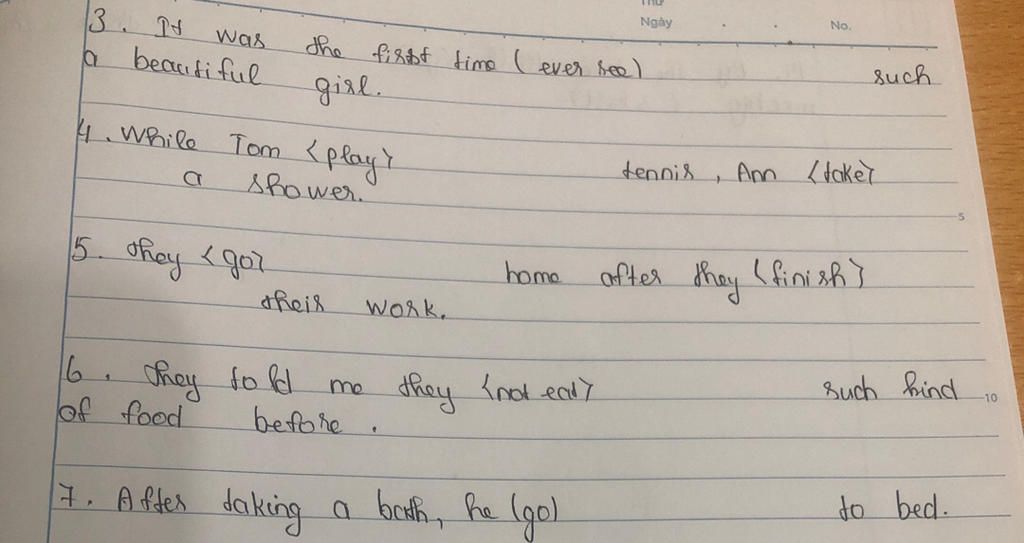 Thứ
Ngày . . No.
3. It was the first time (ever see) such
a beautiful girl.
4. While Tom <play> tennis, Ann <take>
a shower.
5
5. They <go> home after they <finish>
their work.
6. They told me they <not eat> such kind
10
of food before.
7. After taking a bath, he (go) to bed.